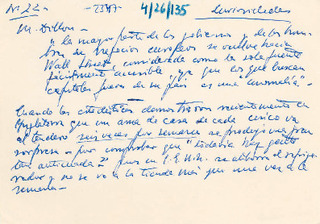 Nº 22 - 2347 4/26/135 Curiosidades
M. Dillon -
a la mayor parte de los
bres de negocios europeos se vuelven hacia
Wall Street, considerada como la sola fuente
fácilmente accesible ya que los que buscan
capitales fuera de su país es una "anomalía".
Cuando los estadísticos demostraron recientemente en
Inglaterra que un ama de casa de cada cinco va
al tendero seis veces por semana se produjo una gran
sorpresa - por comprobar que "todavía hay gente
tan anticuada" pues en E.E.U.U. se
y no se va a la tienda más que una vez a la
semana -